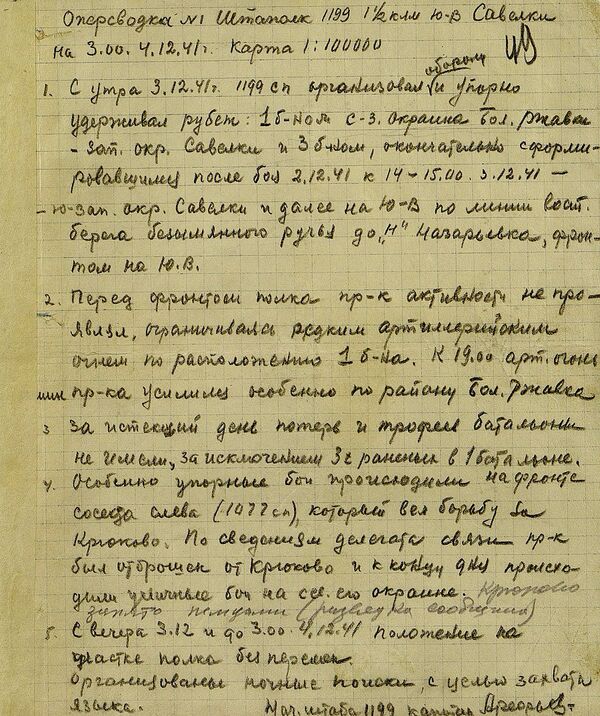 Оперсводка №1 Штаполк 1199 1½ клм Ю-В Савелки
на 3.00. 4.12.41г. Карта 1:100000
1. С утра 3.12.41г. 1199 сп организовал оборону и упорно
удерживал рубеж: 1 б-ном С-З. окраина Бол. Ржавка
- зап. окр. Савелки и 3 б-ном, окончательно сформи-
ровавшимся после боя 2.12.41 к 14-15.00. 3.12.41 —
- Ю-зап. окр. Савелки и далее на Ю-В по линии вост.
берега безымянного ручья до "Н" Назарьевка, фрон-
том на Ю.В.
2. Перед фронтом полка пр-к активности не про-
являл, ограничиваясь редким артиллерийским
огнем по расположению 1 б-на. К 19.00 арт. огонь
мин. пр-ка усилился особенно по району Бол. Ржавка
3 За истекший день потерь и трофеев батальоны
не имели, за исключением 3х раненых в 1 батальоне.
4. Особенно упорные бои происходили на фронте
соседа слева (1077 сп), который вел борьбу за
Крюково. По сведениям делегата связи пр-к
был отброшен от Крюково и к концу дня происхо-
дили уличные бои на сев. его окраине. Крюково
занято немцами (разведка сообщила)
5. С вечера 3.12 и до 3.00 4.12.41 положение на
участке полка без перемен.
Организованы ночные поиски, с целью захвата
языка. Нач. штаба 1199 капитан